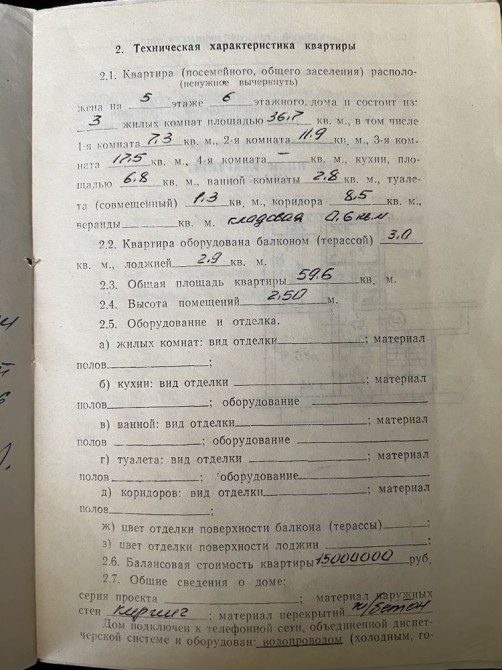 2. Техническая характеристика квартиры
2.1. Квартира (посемейного, общего заселения) располо-
(ненужное вычеркнуть)
жена на 5 этаже 6 этажного, дома и состоит из:
3 жилых комнат площадью 36.7 кв. м, в том числе
1-я комната 7.3 кв. м., 2-я комната 11.9 кв. м., 3-я ком-
ната 17.5 кв. м., 4-я комната — кв. м., кухни, пло-
щадью 6.8 кв. м., ванной комнаты 2.8 кв. м., туале-
та (совмещенный) 1.3 кв. м., коридора 8,5 кв. м.,
веранды кв. м. кладовая 0.6 кв.м
2.2. Квартира оборудована балконом (терассой) 3.0
кв. м., лоджией 2.9 кв. м.
2.3. Общая площадь квартиры 59.6 кв. м.
2.4. Высота помещений 2.50 м.
2.5. Оборудование и отделка.
а) жилых комнат: вид отделки ; материал
полов ;
б) кухни: вид отделки ; материал
полов ; оборудование
в) ванной: вид отделки ; материал
полов ; оборудование
г) туалета: вид отделки ; материал
полов ; оборудование
д) коридоров: вид отделки ; материал
полов ;
ж) цвет отделки поверхности балкона (терассы) ;
з) цвет отделки поверхности лоджии ;
2.6. Балансовая стоимость квартиры 15000000 руб.
2.7. Общие сведения о доме:
серия проекта ; материал наружных
стен кирпич ; материал перекрытий ж/бетон
Дом подключен к телефонной сети, объединенной диспет-
черской системе и оборудован: водопроводом (холодным, го-